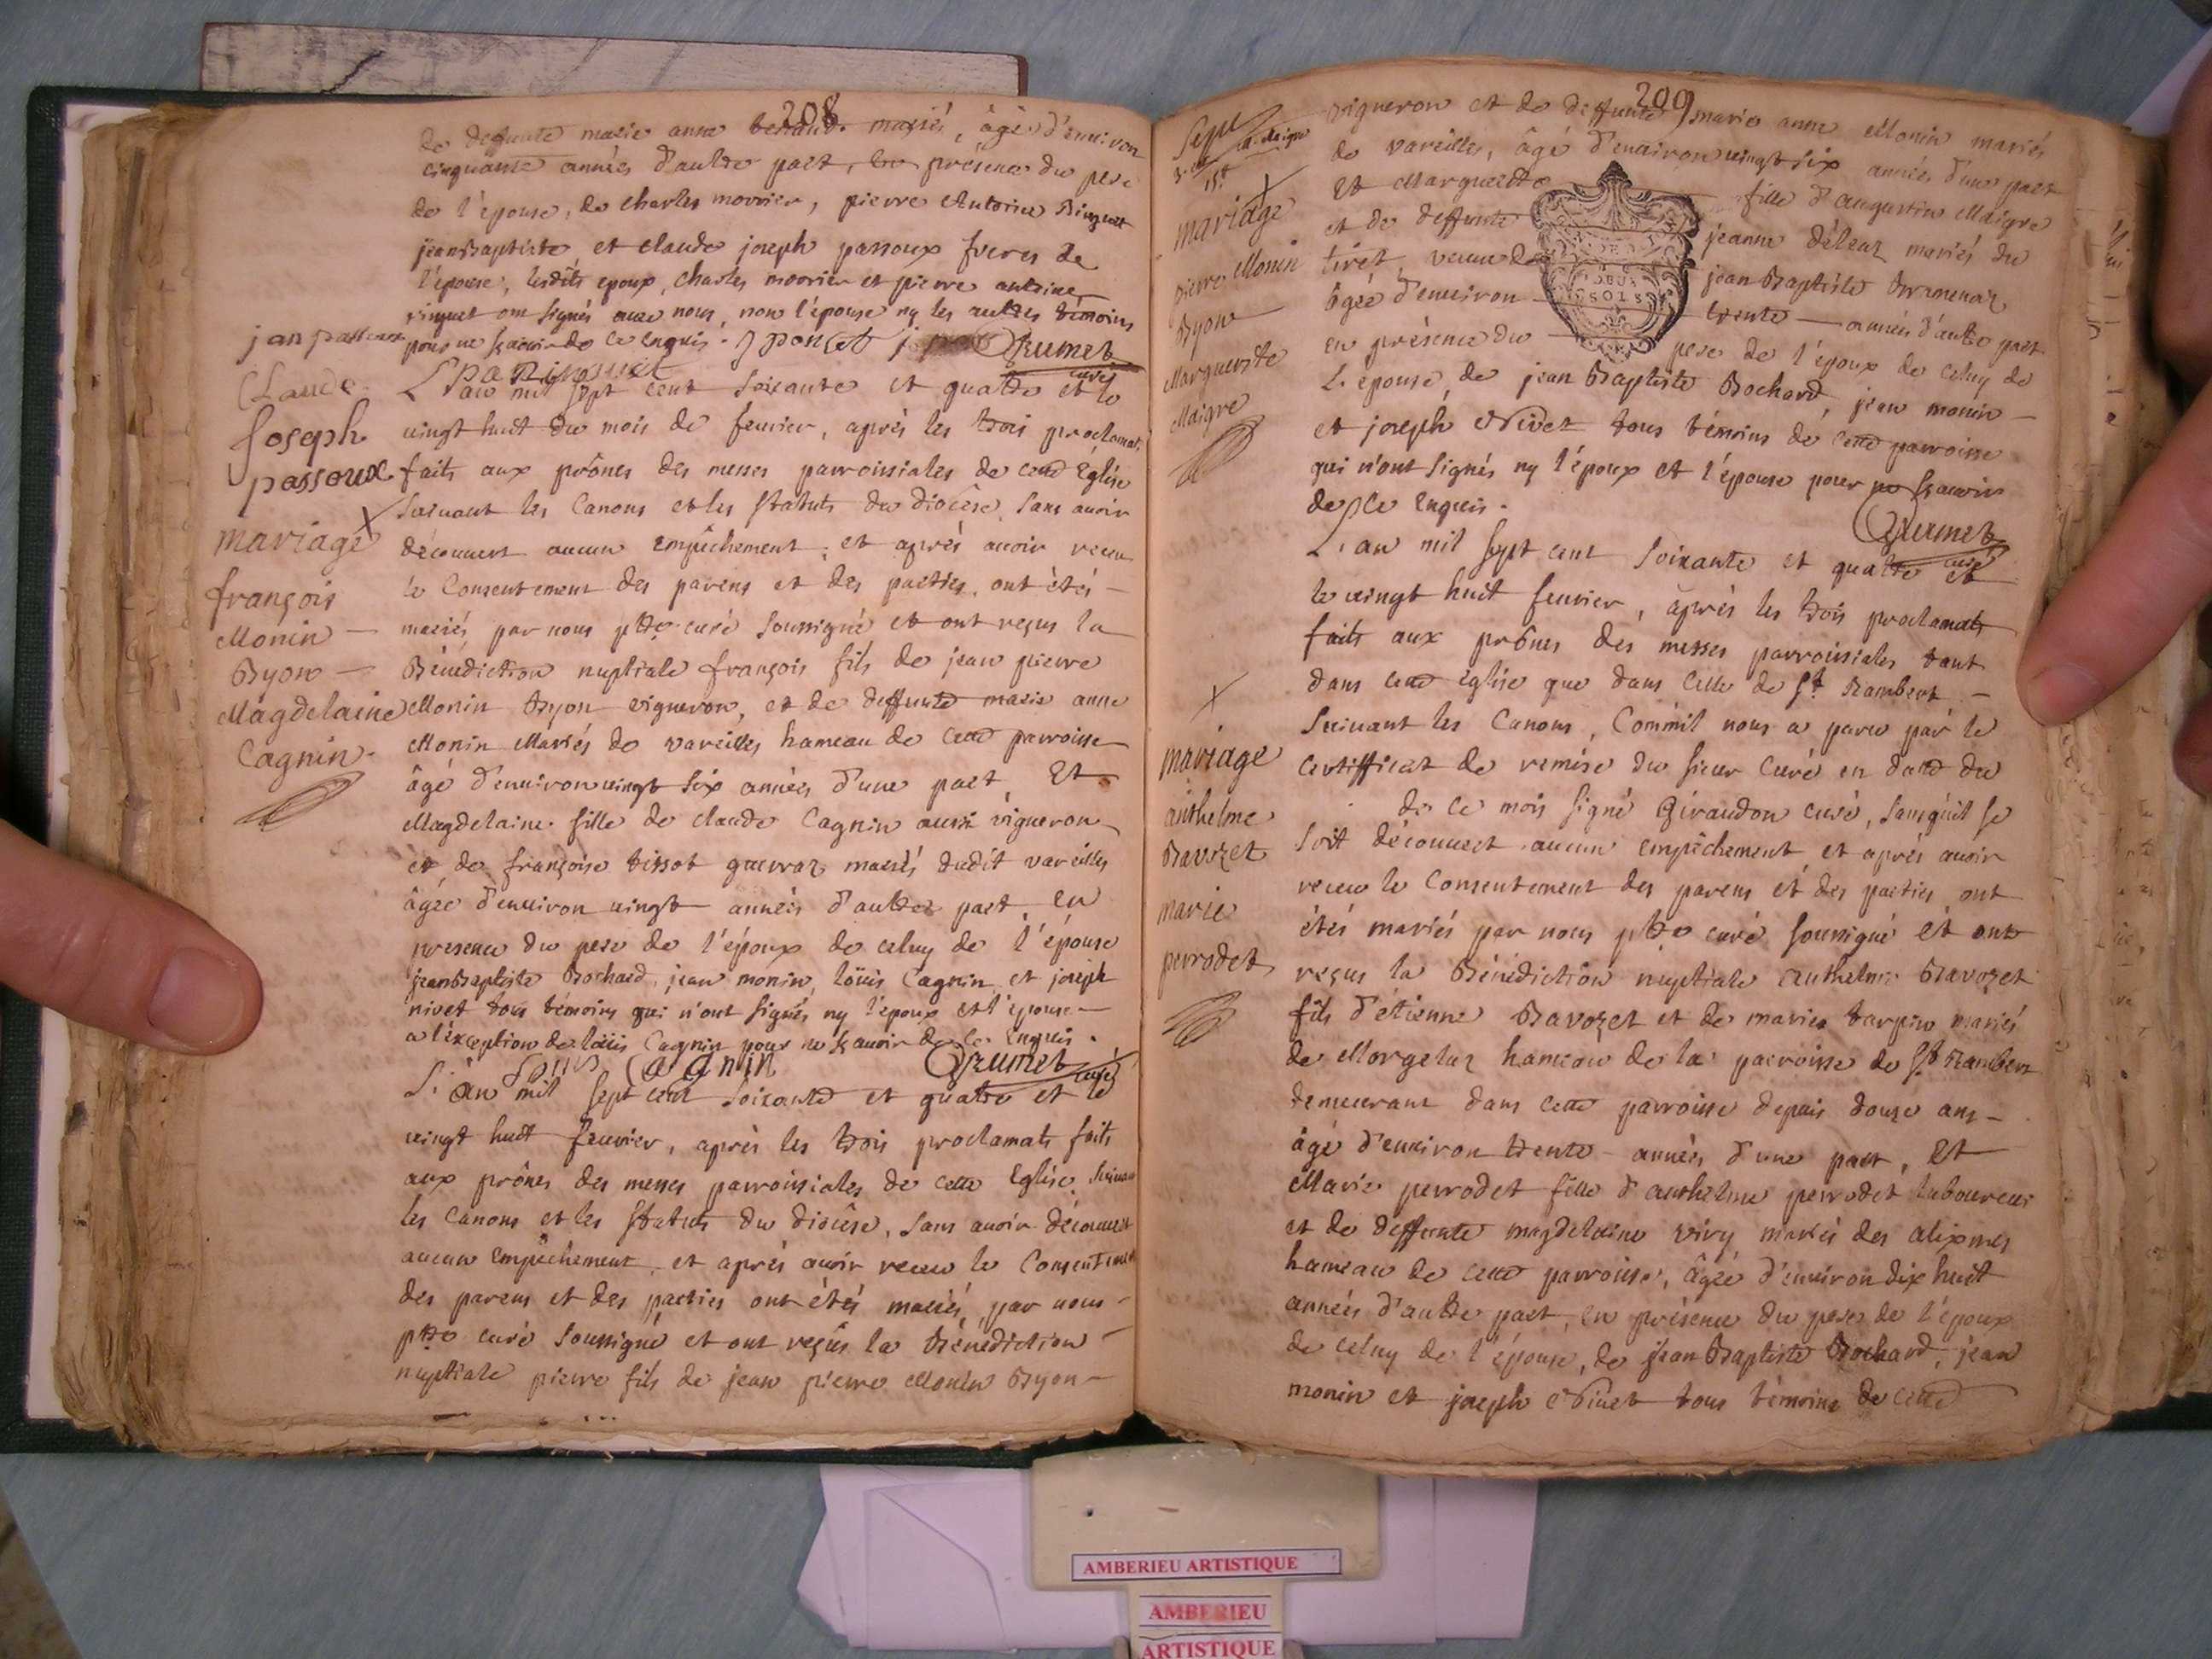 208
de deffunte marie anne mariés, âgé d'enuiron
cinquante années d'autre part, en présence du pere
de l'épouse, de charles mourier, pierre Antoine Ringuet
jean Baptiste et claude joseph passoux freres de
l'épouse, lesdits epoux, charles mourier et pierre antoine
ringuet ont signés avec nous, non l'épouse ny les autres témoins
pour ne sçavoir de ce enquis. J ponset
jan passoux
Claude
Joseph
passoux
P a Ringuet
Grumet
curé
L'an mil sept cent soixante et quattre et le
uingt huit du mois de feurier, après les trois proclamats
faits aux prônes des messes parroissiales de cette Église
suiuant les Canons et les statuts du diocèse, sans auoir
découuert aucun empêchement, et après auoir receu
le Consentement des parens et des parties, ont étés
mariés par nous ptre curé soussigné et ont reçus la
Bénédiction nuptiale françois fils de jean pierre
Monin Byon vigneron, et de deffunte marie anne
Monin Mariés de vareilles hameau de cette parroisse
âgé d'enuiron uingt six années d'une part, Et
Magdelaine fille de claude Cagnin aussi vigneron
et de françoise tissot guerraz mariés dudit vareilles
âgée d'enuiron uingt années d'autre part, en
presence du pere de l'époux de celuy de l'épouse
jean Baptiste Bochard, jean monin, loüis Cagnin et joseph
nivet tous témoins qui n'ont signés ny l'époux et l'épouse
a l'exception de loüis Cagnin pour ne sçauoir de ce Enquis.
Louis Cagnin
Grumet
curé
mariage
françois
Monin
Byon
Magdelaine
Cagnin
L'an mil sept cent soixante et quattre et le
uingt huit feurier, après les trois proclamats faits
aux prônes des messes parroissiales de cette Eglise, suiuant
les Canons et les statuts du diocèse, sans auoir découuert
aucun empêchement, et après auoir receu le Consentement
des parens et des parties ont étés mariés, par nous
ptre curé soussigné et ont reçûs la Bénédiction
nuptiale pierre fils de jean pierre Monin Byon
209
vigneron et de deffunte marie anne Monin mariés
de vareilles, âgé d'enuiron uingt six années d'une part
et Marguerite fille d'augustin Maigre
et de deffunte jeanne déleaz mariés du
tiret, veuue de jean Baptiste
âgée d'enuiron trente années d'autre part
en présence du pere de l'époux de celuy de
L'epouse, de jean Baptiste Bochard, jean monin
et joseph Nivet tous témoins de cette parroisse
qui n'ont signés ny l'époux et l'épouse pour ne sçauoir
de ce enquis.
Grumet
curé
mariage
pierre Monin
Byon
Marguerite
Maigre
L'an mil sept cent soixante et quattre et
le uingt huit feurier, après les trois proclamats
faits aux prônes des messes parroissiales tant
dans cette eglise que dans celle de St Rambert
Suiuant les Canons, Commil nous a paru par le
certifficat de remise du sieur Curé en datte du
de ce mois signé Giraudon curé, sans qu'il se
soit découuert aucun empêchement, et après auoir
receu le Consentement des parens et des parties, ont
étés mariés par nous ptre curé soussigné et ont
reçus la Bénédiction nuptiale anthelme Ravozet
fils d'étienne Ravozet et de marie tarpin mariés
de Morgelaz hameau de la parroisse de St Rambert
demeurant dans cette parroisse depuis douze ans
âgé d'enuiron trente années d'une part, Et
Marie perrodet fille d'anthelme perrodet laboureur
et de deffunte magdelaine viry mariés des alixmes
hameau de cette parroisse, âgée d'enuiron dix huit
années d'autre part, en présence du pere de l'époux
de celuy de l'épouse, de jean Baptiste Bochard, jean
monin et joseph Nivet tous témoins de cette
mariage
anthelme
Ravozet
marie
perrodet
AMBERIEU ARTISTIQUE
AMBERIEU
ARTISTIQUE